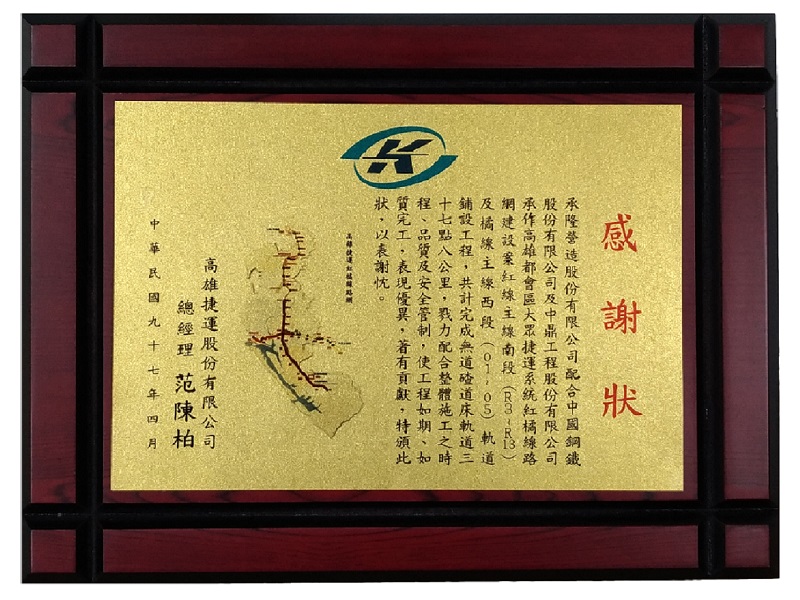 感謝狀
承隆營造股份有限公司配合中國鋼鐵
股份有限公司及中鼎工程股份有限公司
承作高雄都會區大眾捷運系統紅橘線路
網建設案紅線主線南段(R3-R13)
及橘線主線西段(O1-O5)軌道
鋪設工程,共計完成無道碴道床軌道三
十七點八公里,戮力配合整體施工之時
程、品質及安全管制,使工程如期、如
質完工,表現優異,著有貢獻,特頒此
狀,以表謝忱。
高雄捷運紅橘線路網
高雄捷運股份有限公司
總經理 范陳柏
中華民國九十七年四月